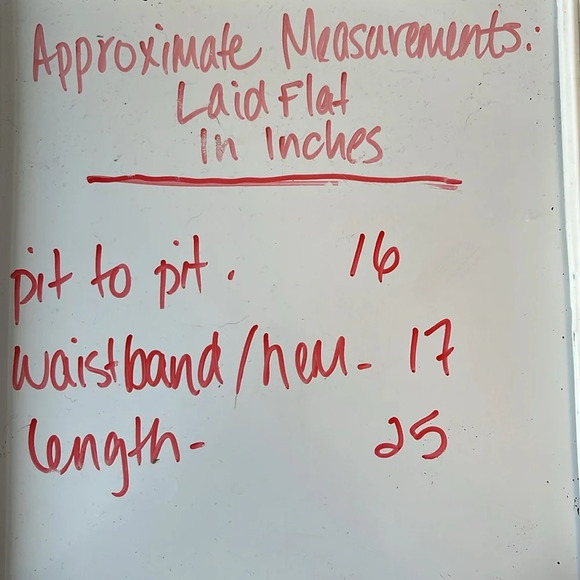 Approximate Measurements:
Laid Flat
In Inches
pit to pit. 16
waistband/hem- 17
length- 25